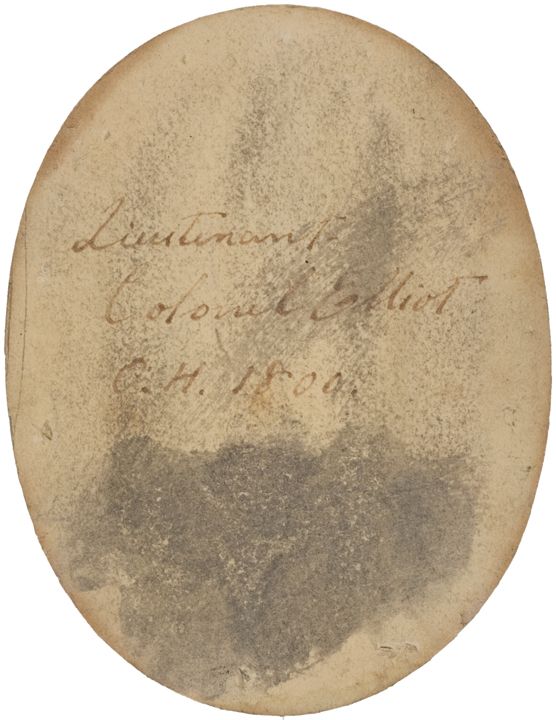 Lieutenant
Colonel Elliot
C. H. 1800.